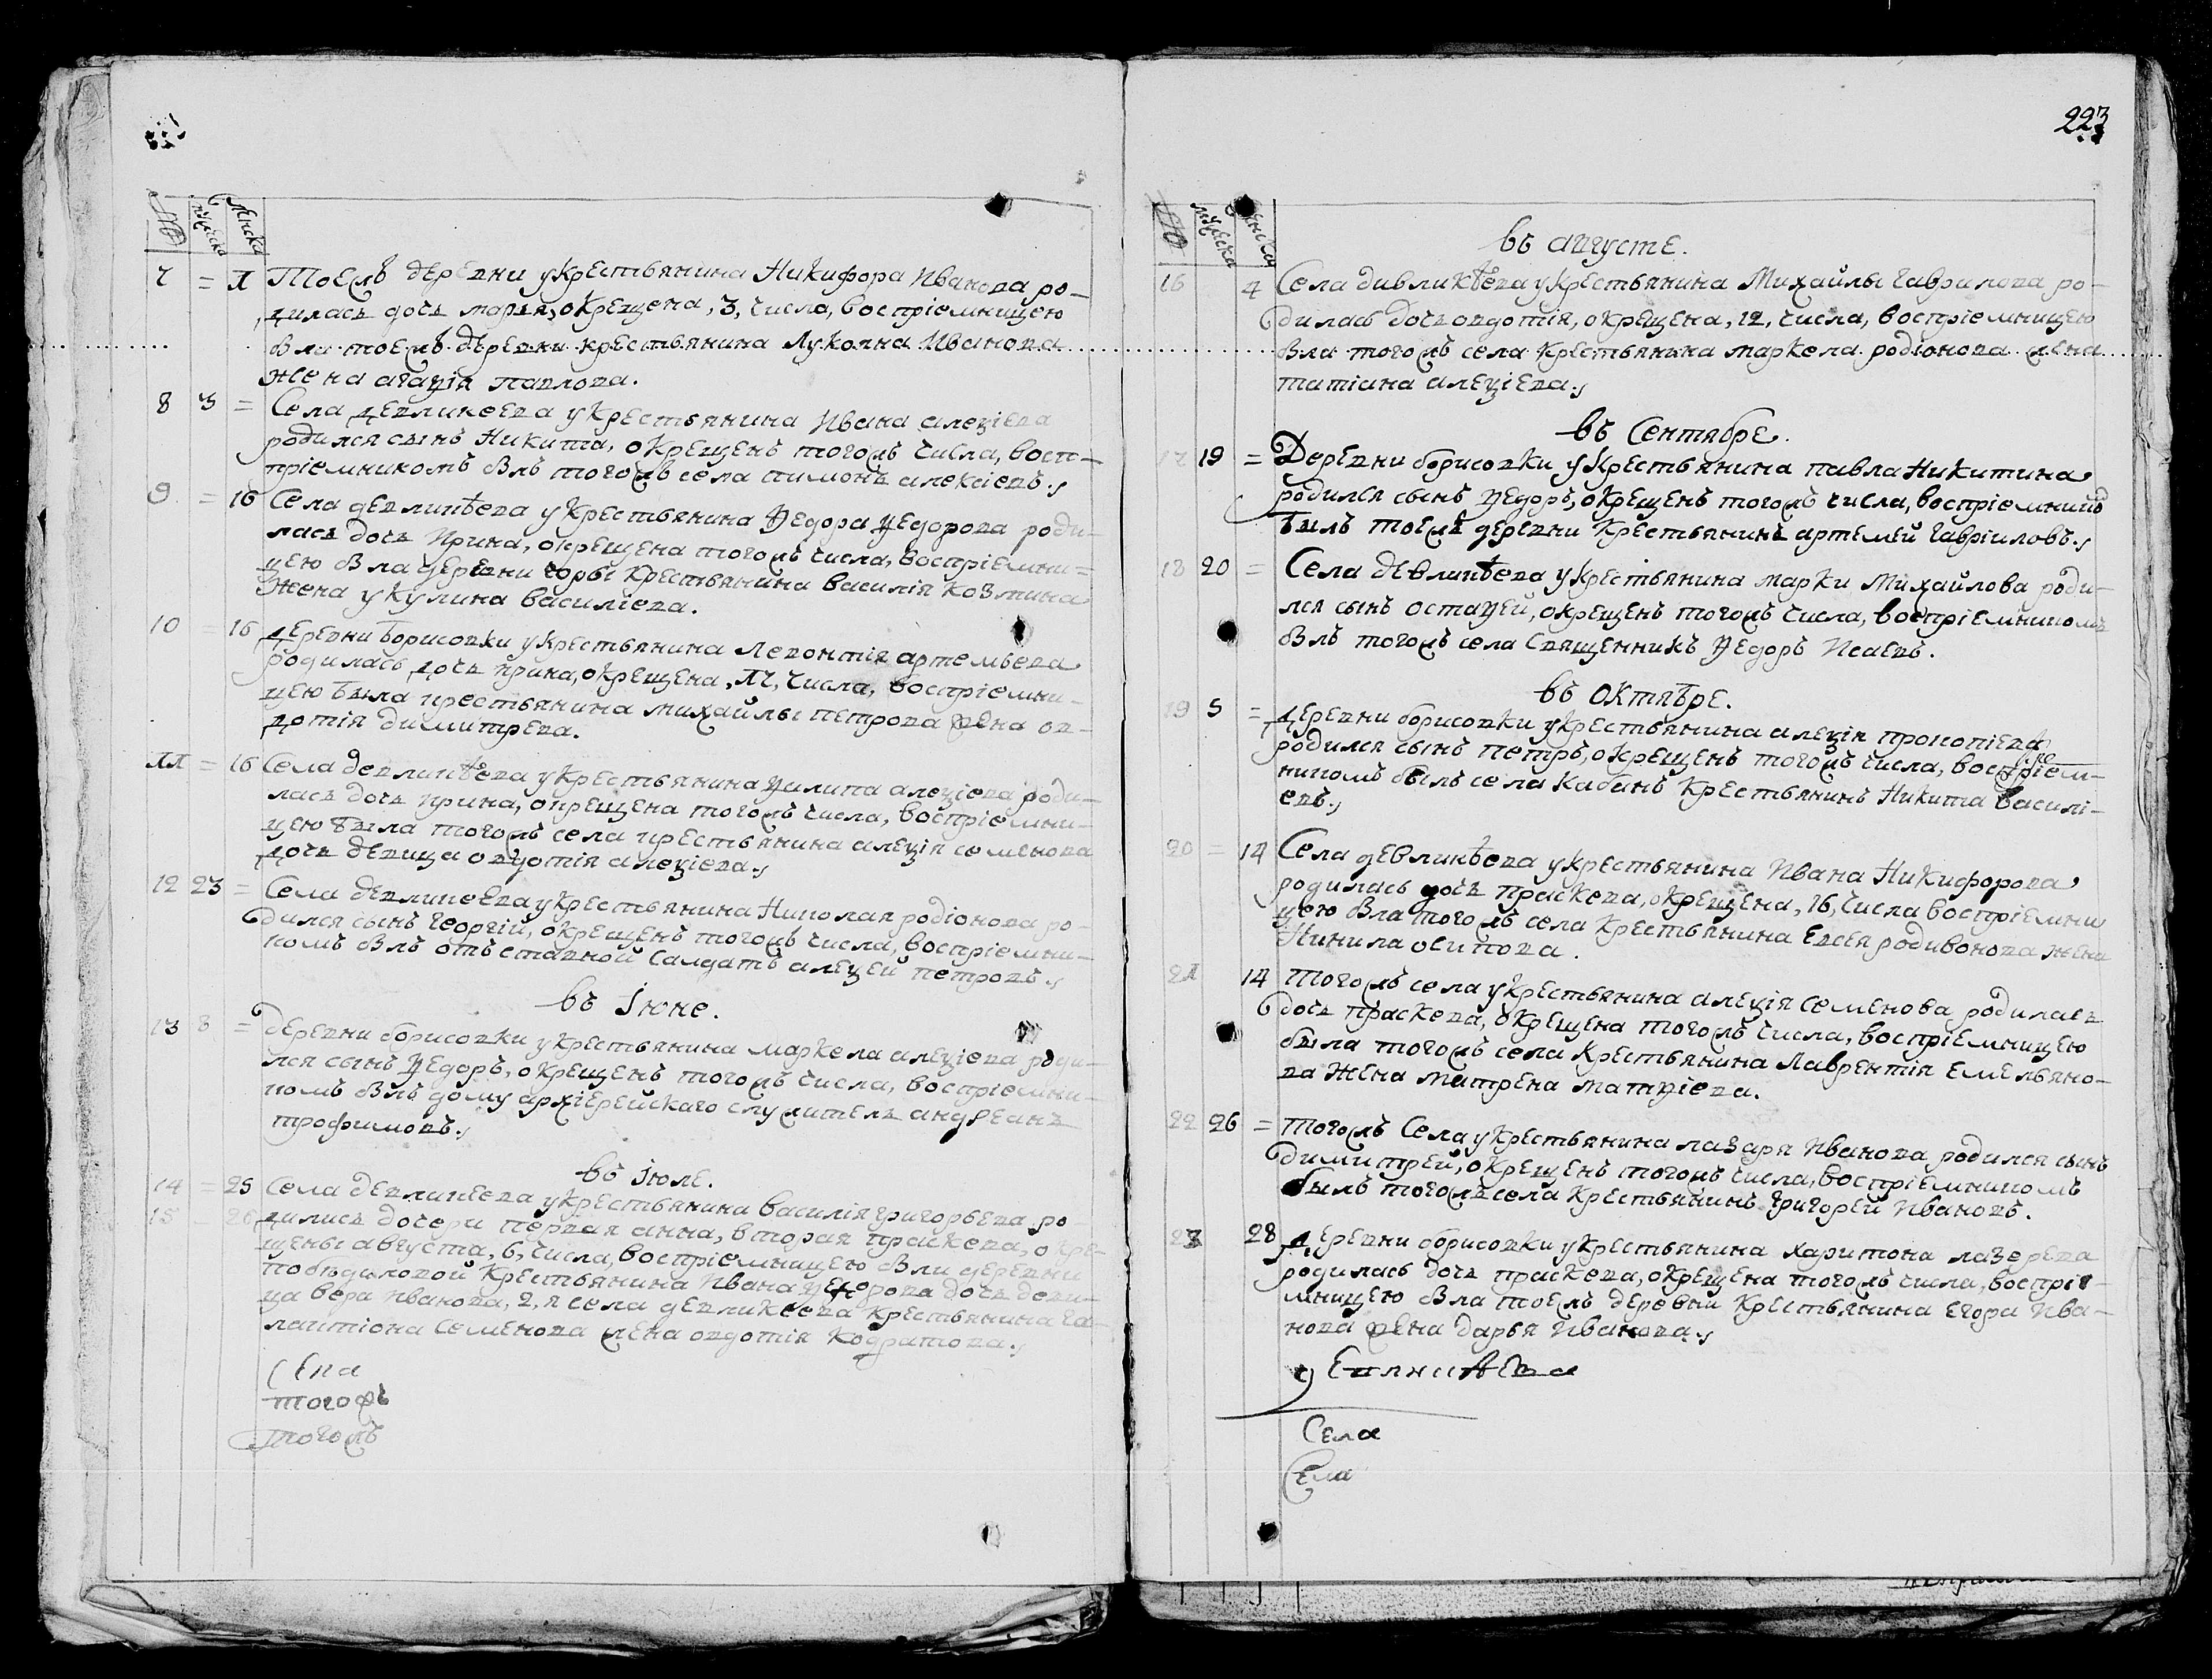 № мужеска женска
7 = 1 Тоеяжъ деревни у крестьянина Никифора Иванова ро-
дилась дочь марья, окрещена, 3, числа, воспріемницею
была тоежъ деревни крестьянина Лукояна Иванова
жена агафія павлова.
8 3 = Села девликеева у крестьянина Ивана алеѯіева
родился сынъ Никита, окрещенъ тогожъ числа, восп-
пріемникомъ былъ тогожъ села пимонъ алексіевъ.
9 = 16 Села девликѣева у крестьянина Ѳедора Ѳедорова роди-
лась дочь Ирина, окрещена тогожъ числа, воспріемни-
цею была деревни горы крестьянина василія козмина
жена укулина василіева.
10 = 16 деревни борисовки у крестьянина Левонтія артемьева
родилась дочь ирина, окрещена, 17, числа, воспріемни-
цею была крестьянина михайлы петрова жена ов-
дотія димитрева.
11 = 16 Села девликѣева у крестьянина Ѳилипа алеѯіева роди-
лась дочь ирина, окрещена тогожъ числа, воспріемни-
цею была тогожъ села крестьянина алеѯія семенова
дочь девица овдотія алеѯіева.
12 23 = Села девликеева у крестьянина Николая родіонова ро-
дился сынъ Георгій, окрещенъ тогожъ числа, воспріемни-
комъ былъ отъставной салдатъ алеѯей петровъ.
въ Іюне.
13 8 = деревни борисовки у крестьянина маркела алеѯіева роди-
лся сынъ Ѳедоръ, окрещенъ тогожъ числа, воспріемни-
комъ былъ дому архіерейскаго служитель андреанъ
трофимовъ.
въ Іюле.
14 = 25 Села девликеева у крестьянина василія григорьева ро-
15 = 26 дились дочери первая анна, вторая праскева, окре-
щены августа, 6, числа, воспріемницею были деревни
крестьянина Ивана Ѳедорова дочь деви-
ца вера иванова, 2, я села девликеева крестьянина га-
лактіона семенова жена овдотія кодратова.
Села
тогожъ
тогожъ
223
№ мужеска женска
въ августе.
16 4 Села дивликѣева у крестьянина Михайлы гаврилова ро-
дилась дочь овдотія, окрещена, 12, числа, воспріемницею
была тогожъ села крестьянина маркела родіонова жена
татіана алеѯіева.
въ Сентябре.
17 19 = Деревни борисовки у крестьянина павла Никитина
родился сынъ Ѳедоръ, окрещенъ тогожъ числа, воспріемникъ
былъ тоежъ деревни крестьянинъ артемей гавріиловъ.
18 20 = Села девликѣева у крестьянина марки михайлова роди-
лся сынъ остаѳей, окрещенъ тогожъ числа, воспріемникомъ
былъ тогожъ села Священникъ Ѳедоръ Исаевъ.
въ Октябре.
19 5 = деревни борисовки у крестьянина алеѯія прокопіева
родился сынъ петръ, окрещенъ тогожъ числа, воспріем-
никомъ былъ села кабанъ крестьянинъ Никита василі-
евъ.
20 = 14 Села девликѣева у крестьянина Ивана Никифорова
родилась дочь праскева, окрещена, 16, числа воспріемни
цею была тогожъ села крестьянина евсея родивонова жена
Нинила осипова.
21 14 тогожъ села у крестьянина алеѯія семенова родилась
дочь праскева, окрещена тогожъ числа, воспріемницею
была тогожъ села крестьянина Лаврентія емельяно-
ва жена матрена матѳіева.
22 26 = тогожъ Села у крестьянина лазаря Иванова родился сынъ
димитрей, окрещенъ тогожъ числа, воспріемникомъ
былъ тогожъ села крестьянинъ григорей Ивановъ.
23 28 деревни борисовки у крестьянина харитона лазерева
родилась дочь праскева, окрещена тогожъ числа, воспріе-
мницею была тоежъ деревни крестьянина егора Ива-
нова жена дарья Иванова.
Села
Села